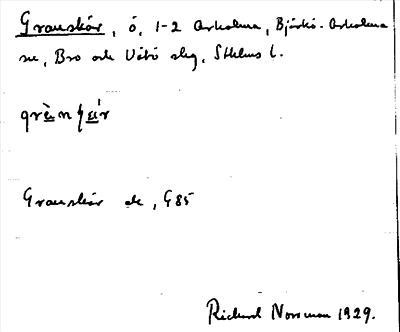 Granskär, ö, 1-2 Arholma, Björkö-Arholma
sn, Bro och Vätö slg, Sthlms l.
Granskär ek, G85
Richard Norrman 1929.